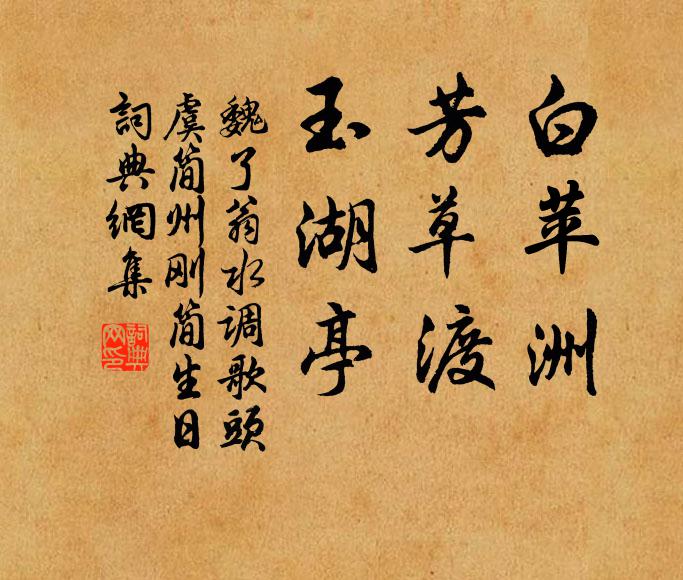 白苹洲
芳草渡
玉湖亭
魏了翁水调歌头
虞简州刚简生日
詞典網集
詞典
网印